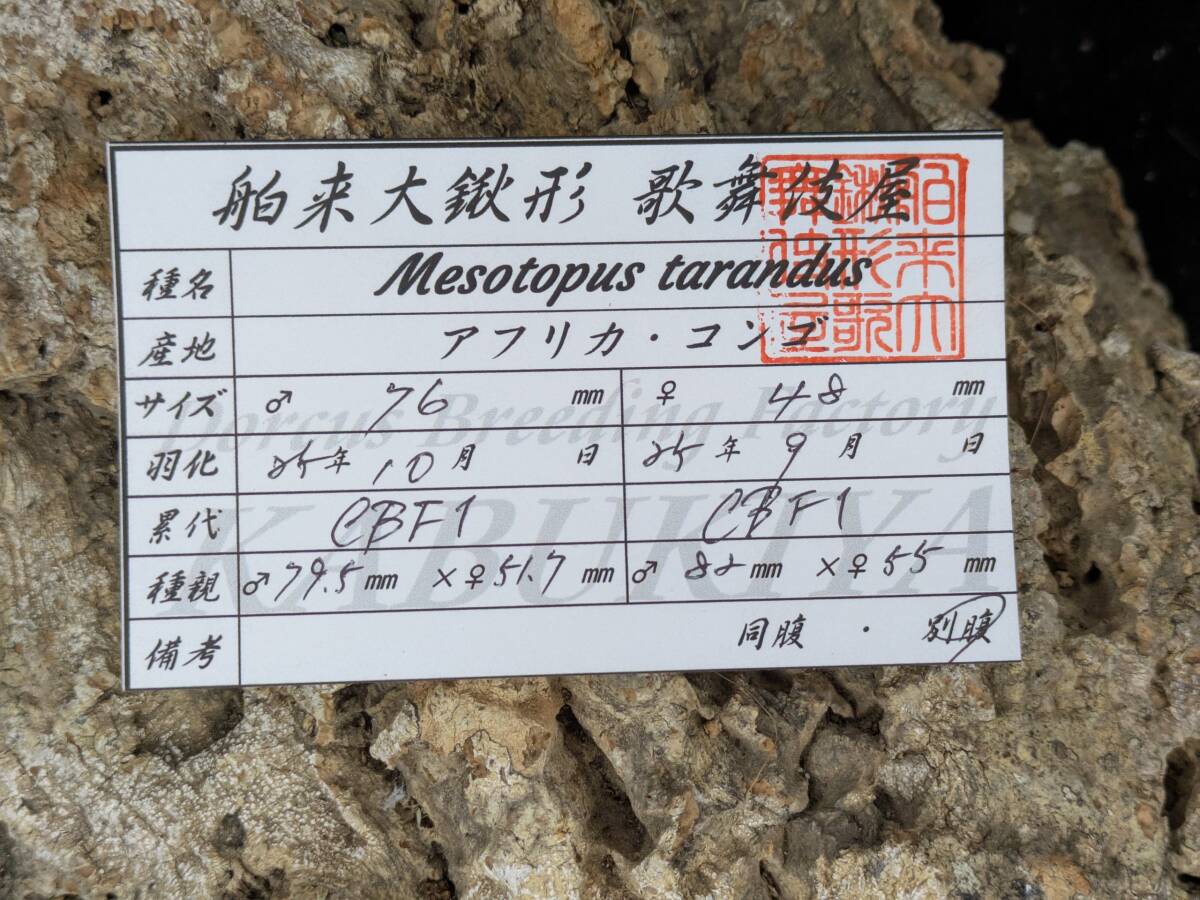 舶来大鍬形 歌舞伎屋
種名 Mesotopus tarandus
産地 アフリカ・コンゴ
サイズ ♂ 76 mm ♀ 48 mm
羽化 25年 10月 日 25年 9月 日
累代 CBF1 CBF1
種親 ♂79.5mm ×♀51.7mm ♂82mm ×♀55mm
備考 同腹 ・ 別腹
Dorcus Breeding Factory
KABUKIYA
舶来大
鍬形歌
舞伎屋